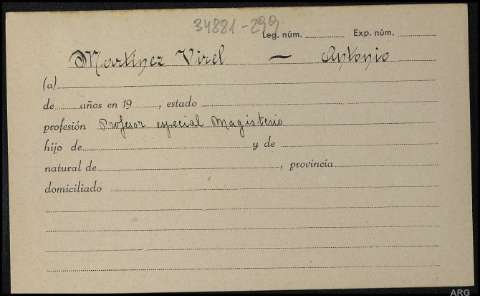 34881-299
Leg. núm. Exp. núm.
Martínez Virel — Antonio
(a)
de años en 19 , estado
profesión Profesor especial Magisterio
hijo de y de
natural de , provincia
domiciliado
ARG